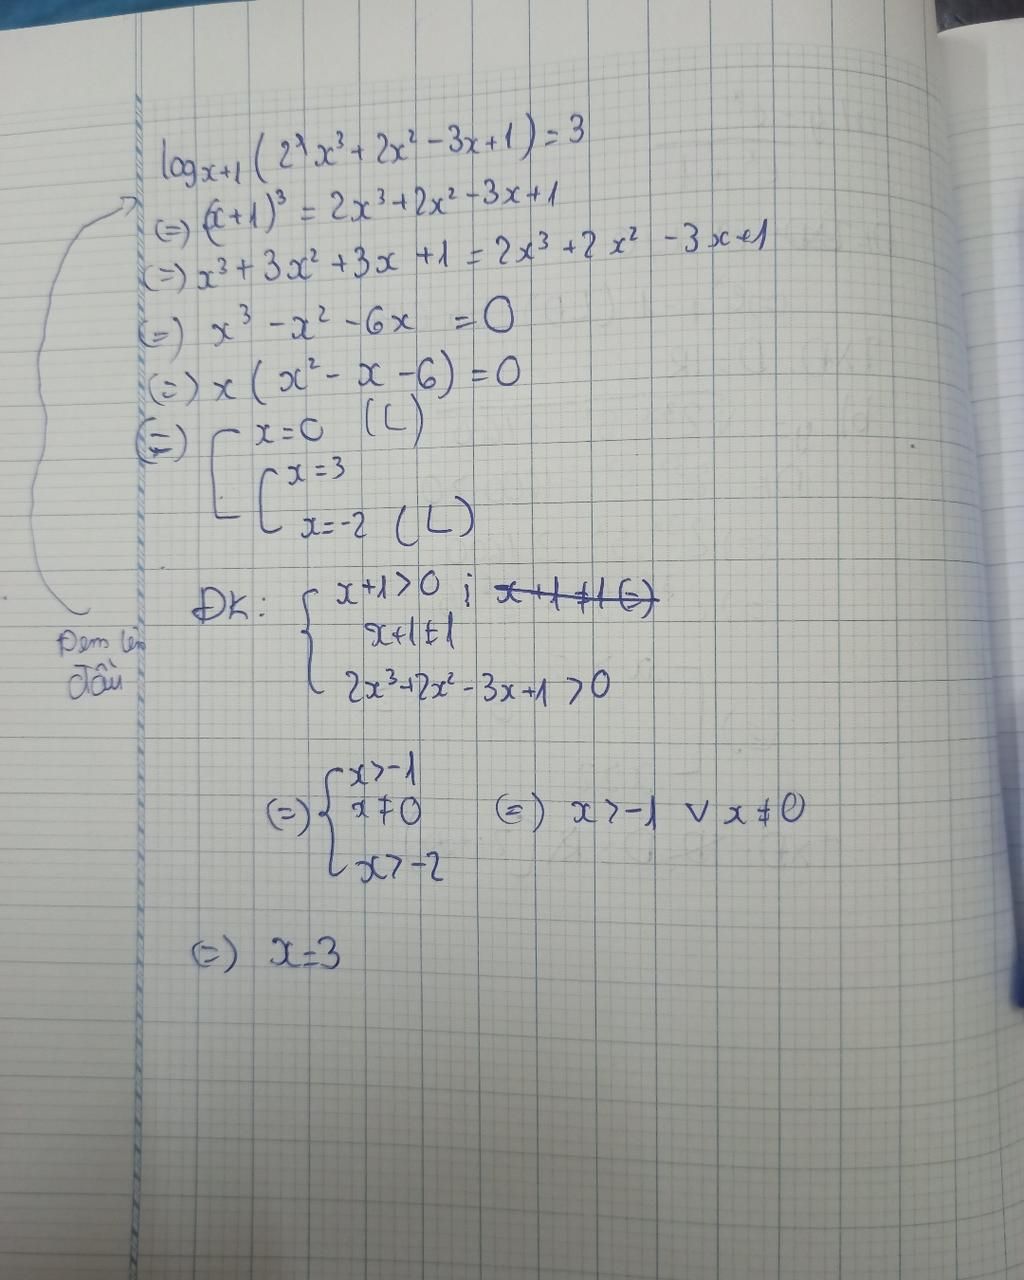 log_{x+1} (2x³ + 2x² - 3x + 1) = 3
(=) (x+1)³ = 2x³ + 2x² - 3x + 1
(=) x³ + 3x² + 3x + 1 = 2x³ + 2x² - 3x + 1
(=) x³ - x² - 6x = 0
(=) x (x² - x - 6) = 0
(=) [ x = 0 (L)
[ x = 3
x = -2 (L)
ĐK: { x+1 > 0 ; x+1 ≠ 1 (=)
x+1 ≠ 1
2x³ + 2x² - 3x + 1 > 0
Đem lên
đầu
(=) { x > -1
x ≠ 0 (=) x > -1 ∨ x ≠ 0
x > -2
(=) x = 3